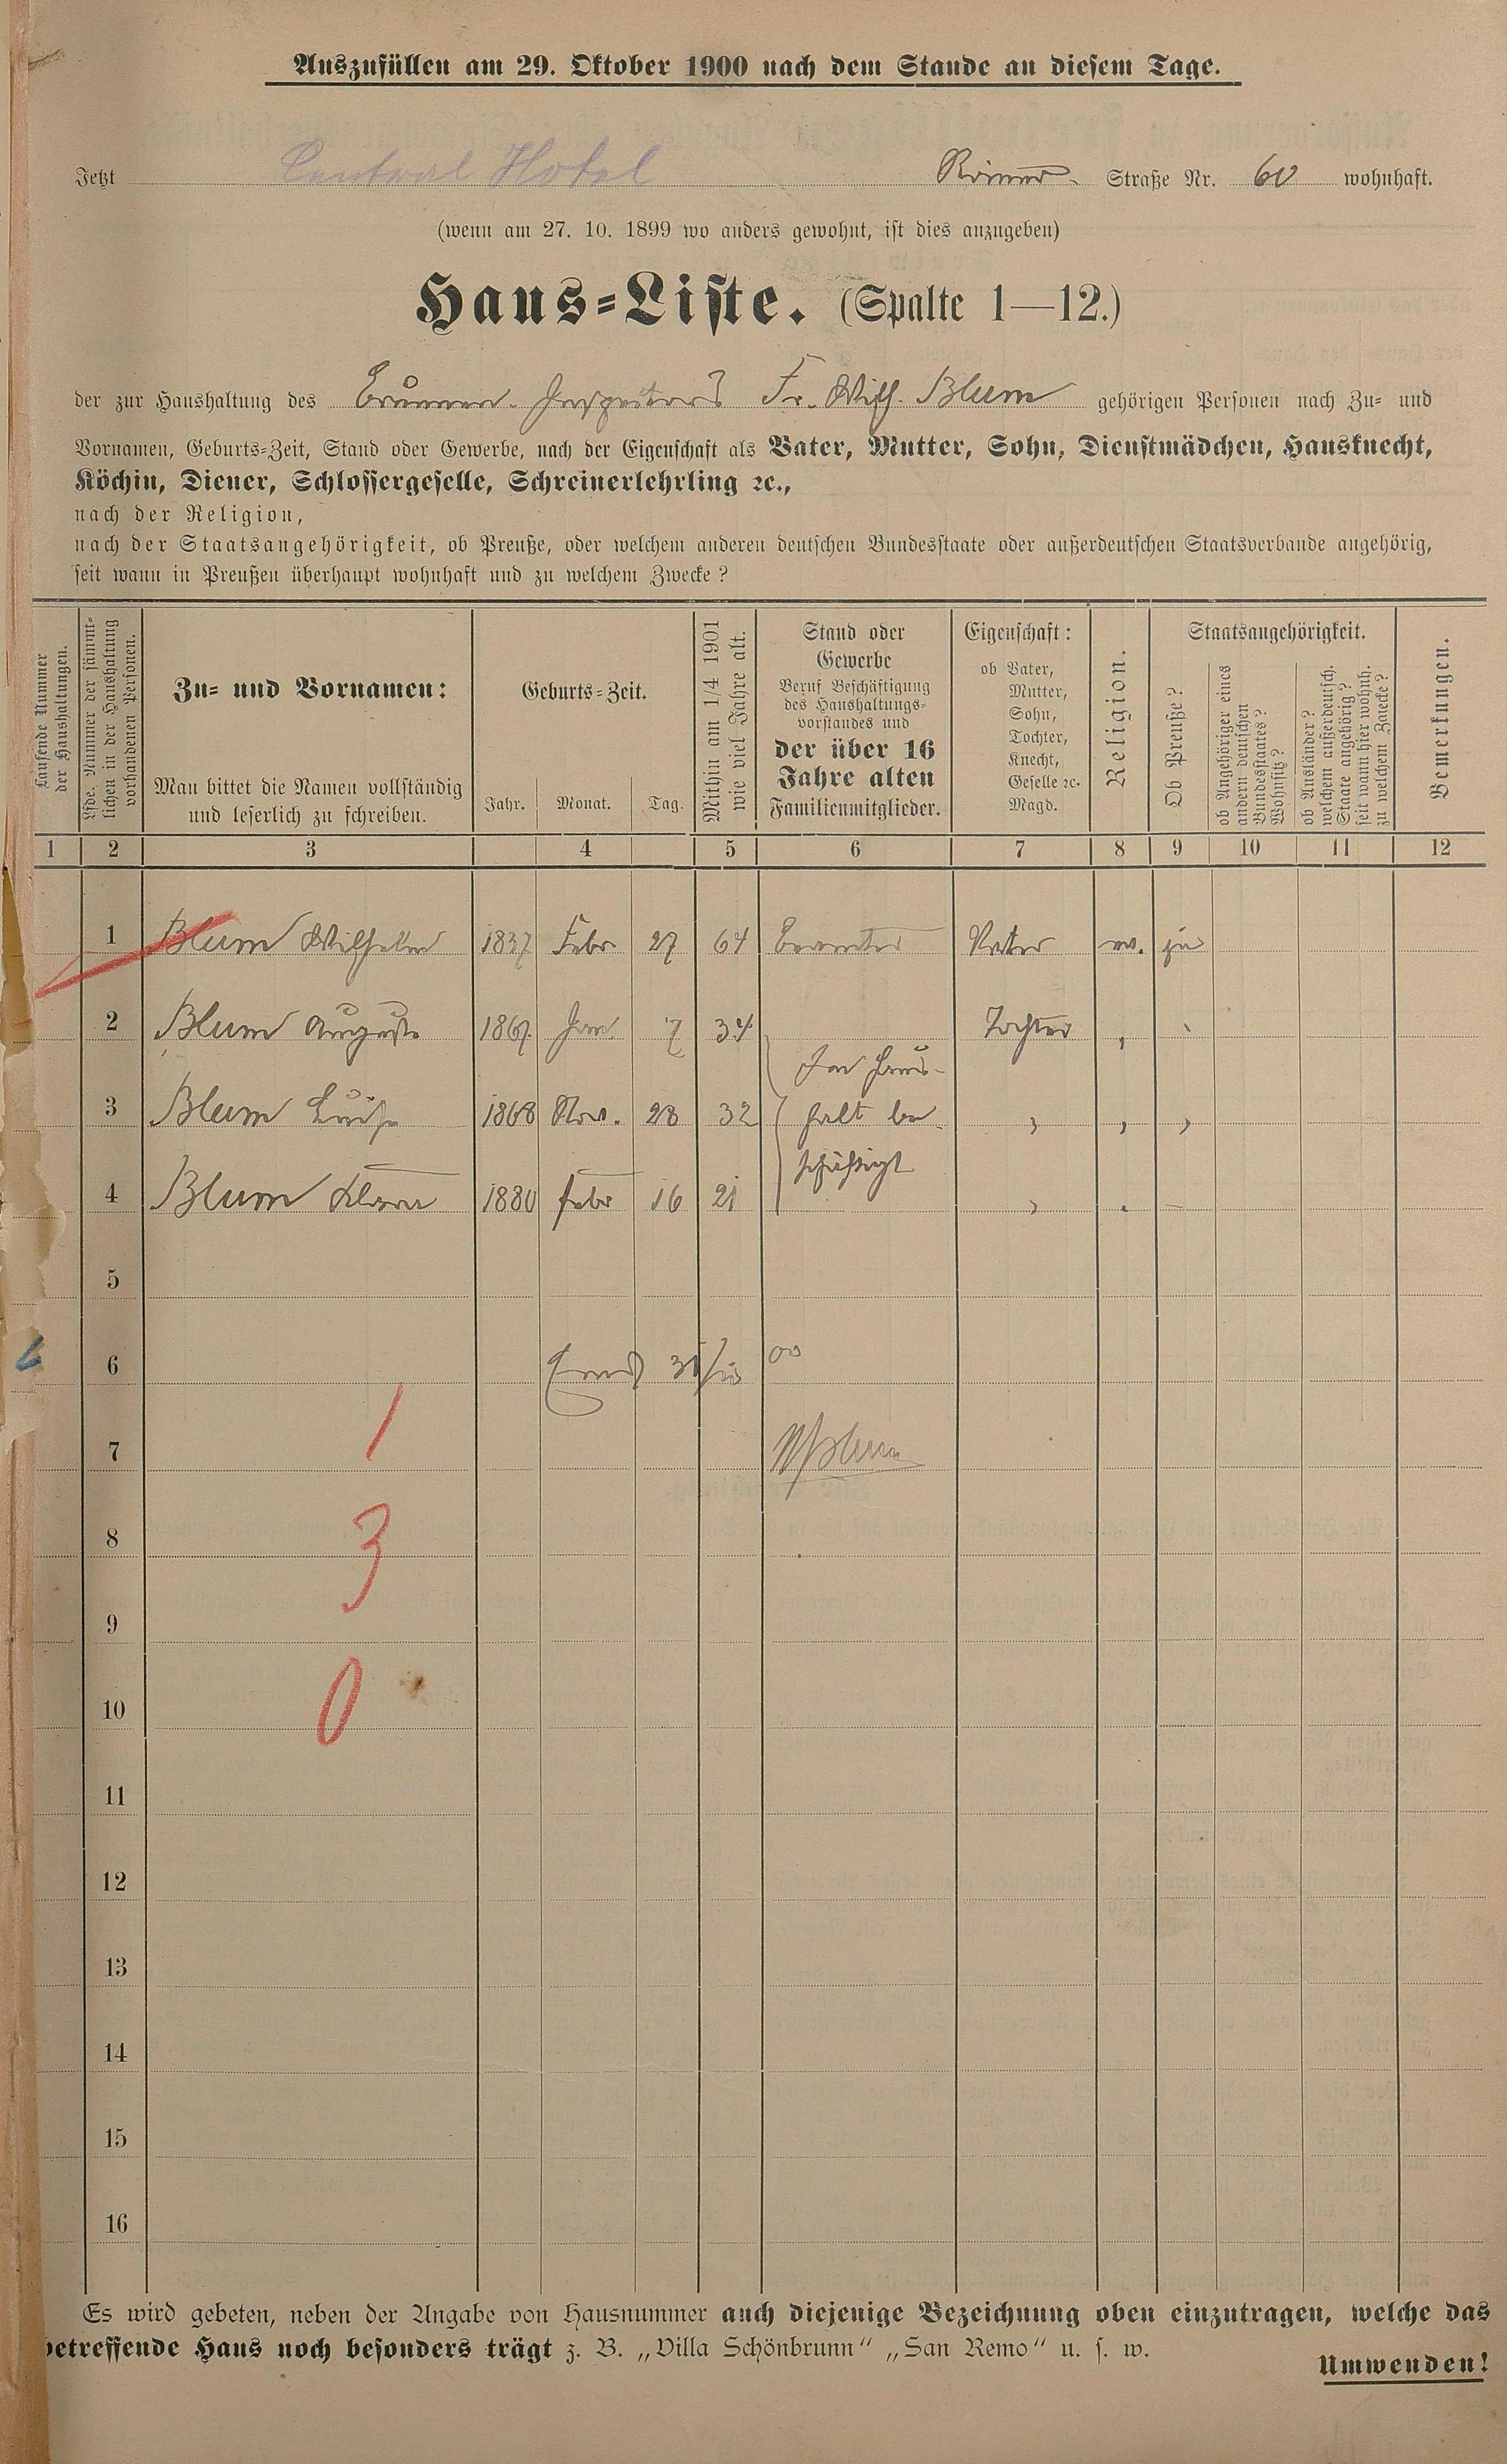 Auszufüllen am 29. Oktober 1900 nach dem Stande an diesem Tage.
Jetzt Central Hotel Römer- Straße Nr. 60 wohnhaft.
(wenn am 27. 10. 1899 wo anders gewohnt, ist dies anzugeben)
Haus-Liste. (Spalte 1—12.)
der zur Haushaltung des Brunnen-Inspektors Fr. Wilh. Blum gehörigen Personen nach Zu- und
Vornamen, Geburts-Zeit, Stand oder Gewerbe, nach der Eigenschaft als Vater, Mutter, Sohn, Dienstmädchen, Hausknecht,
Köchin, Diener, Schlossergeselle, Schreinerlehrling ꝛc.,
nach der Religion,
nach der Staatsangehörigkeit, ob Preuße, oder welchem anderen deutschen Bundesstaate oder außerdeutschen Staatsverbande angehörig,
seit wann in Preußen überhaupt wohnhaft und zu welchem Zwecke?
Laufende Nummer
der Haushaltungen.
Lfde. Nummer der sämmt-
lichen in der Haushaltung
vorhandenen Personen.
Zu- und Vornamen:
Man bittet die Namen vollständig
und leserlich zu schreiben.
Geburts-Zeit.
Jahr. Monat. Tag.
Mithin am 1/4 1901
wie viel Jahre alt.
Stand oder
Gewerbe
Beruf Beschäftigung
des Haushaltungs-
vorstandes und
der über 16
Jahre alten
Familienmitglieder.
Eigenschaft:
ob Vater,
Mutter,
Sohn,
Tochter,
Knecht,
Geselle ꝛc.
Magd.
Religion.
Staatsangehörigkeit.
Ob Preuße?
ob Angehöriger eines
andern deutschen
Bundesstaates?
Wohnsitz?
ob Ausländer?
welchem außerdeutsch.
Staate angehörig?
seit wann hier wohnh.
zu welchem Zwecke?
Bemerkungen.
1 2 3 4 5 6 7 8 9 10 11 12
1 Blum Wilhelm 1837 Febr 27 64 Beamter Vater ev. ja
2 Blum Auguste 1867 Jan. 7 34 Tochter „
Im Haus-
3 Blum Luise 1868 Nov. 28 32 halt be- „ „ „
schäftigt
4 Blum Klara 1880 Febr 16 21 „ „
5
6 Ems 31/10 00
1
7 W Blum
3
8
9
0
10
11
12
13
14
15
16
Es wird gebeten, neben der Angabe von Hausnummer auch diejenige Bezeichnung oben einzutragen, welche das
betreffende Haus noch besonders trägt z. B. „Villa Schönbrunn“ „San Remo“ u. s. w.
Umwenden!